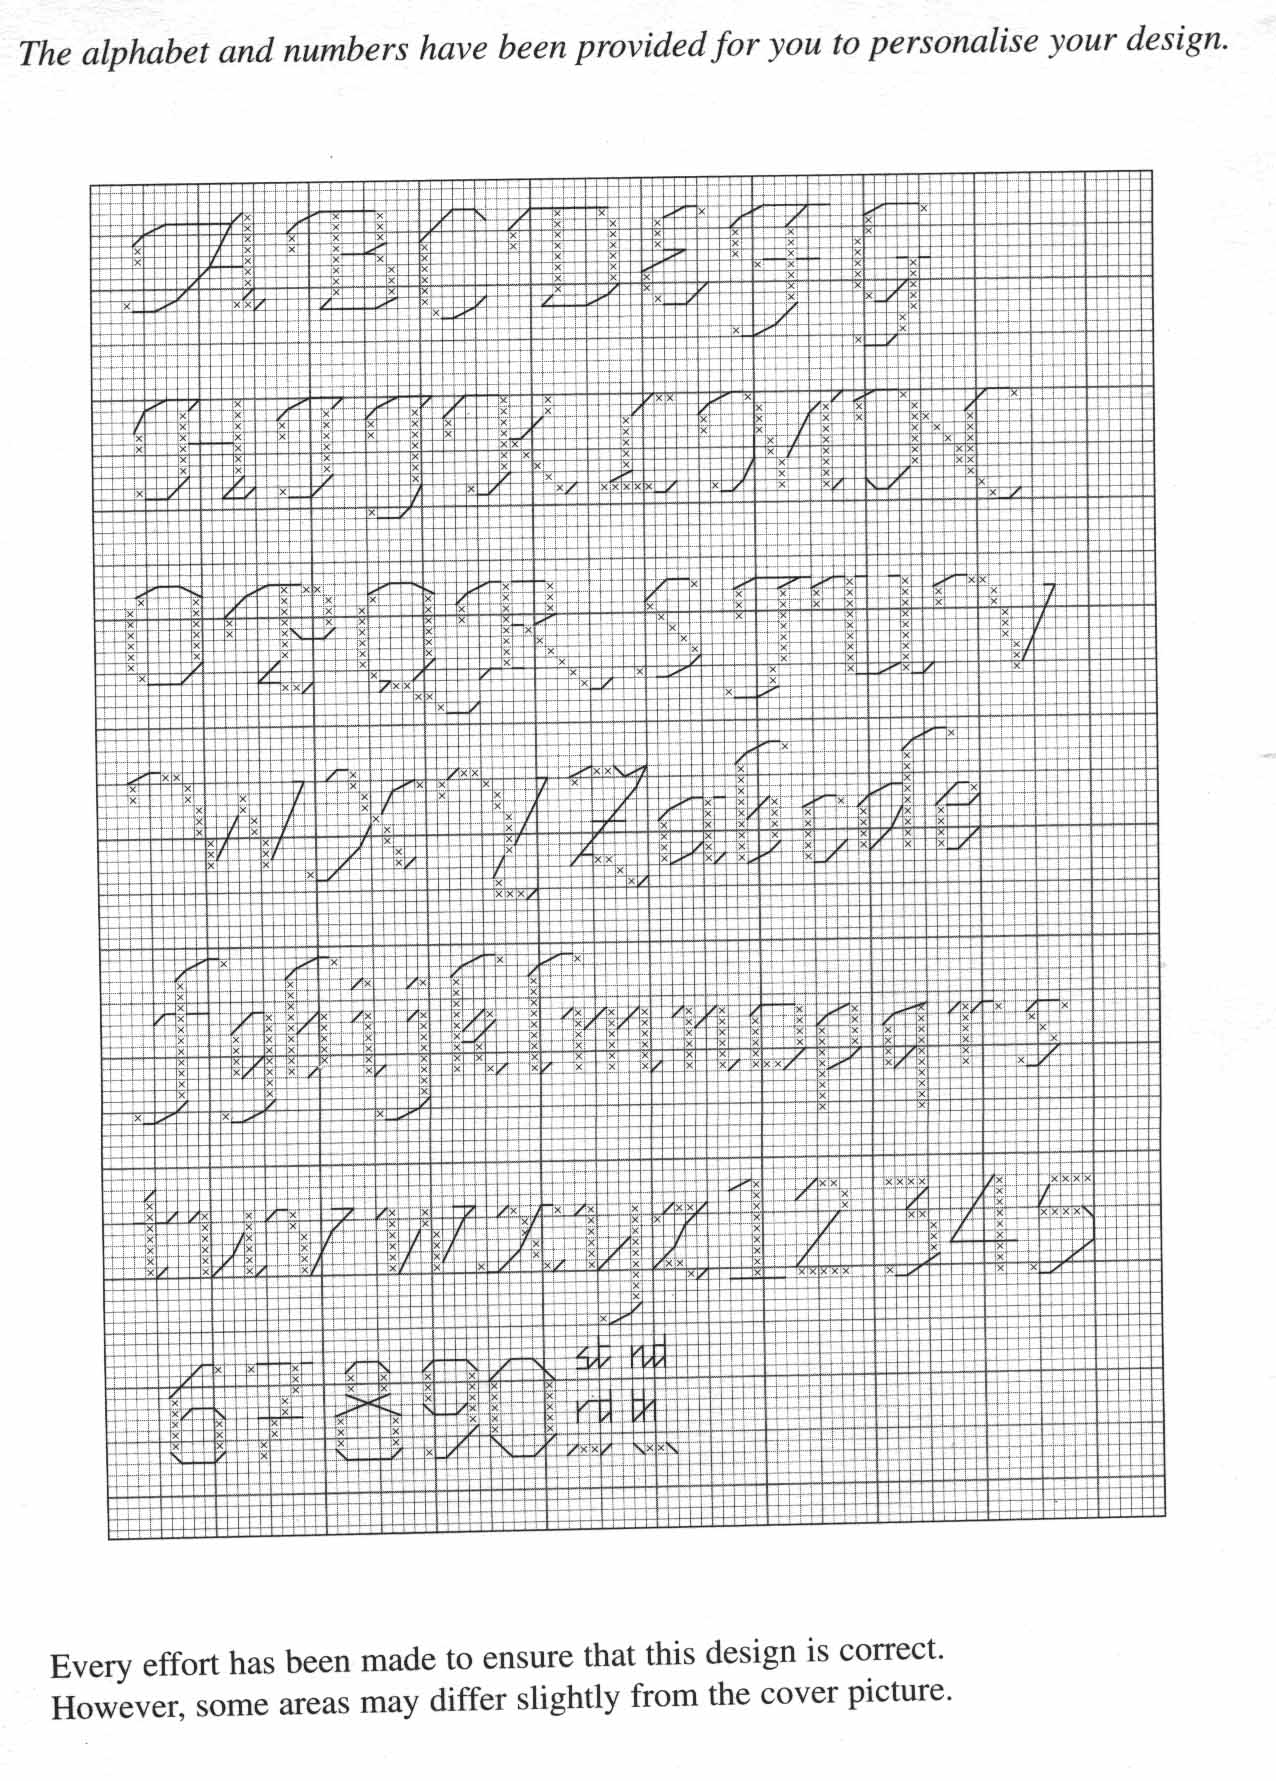 The alphabet and numbers have been provided for you to personalise your design.
A B C D E F G
H I J K L M N
O P Q R S T U V
W X Y Z a b c d e
f g h i j k l m n o p q r s
t u v w x y z 1 2 3 4 5
6 7 8 9 0 st nd
rd th
Every effort has been made to ensure that this design is correct.
However, some areas may differ slightly from the cover picture.